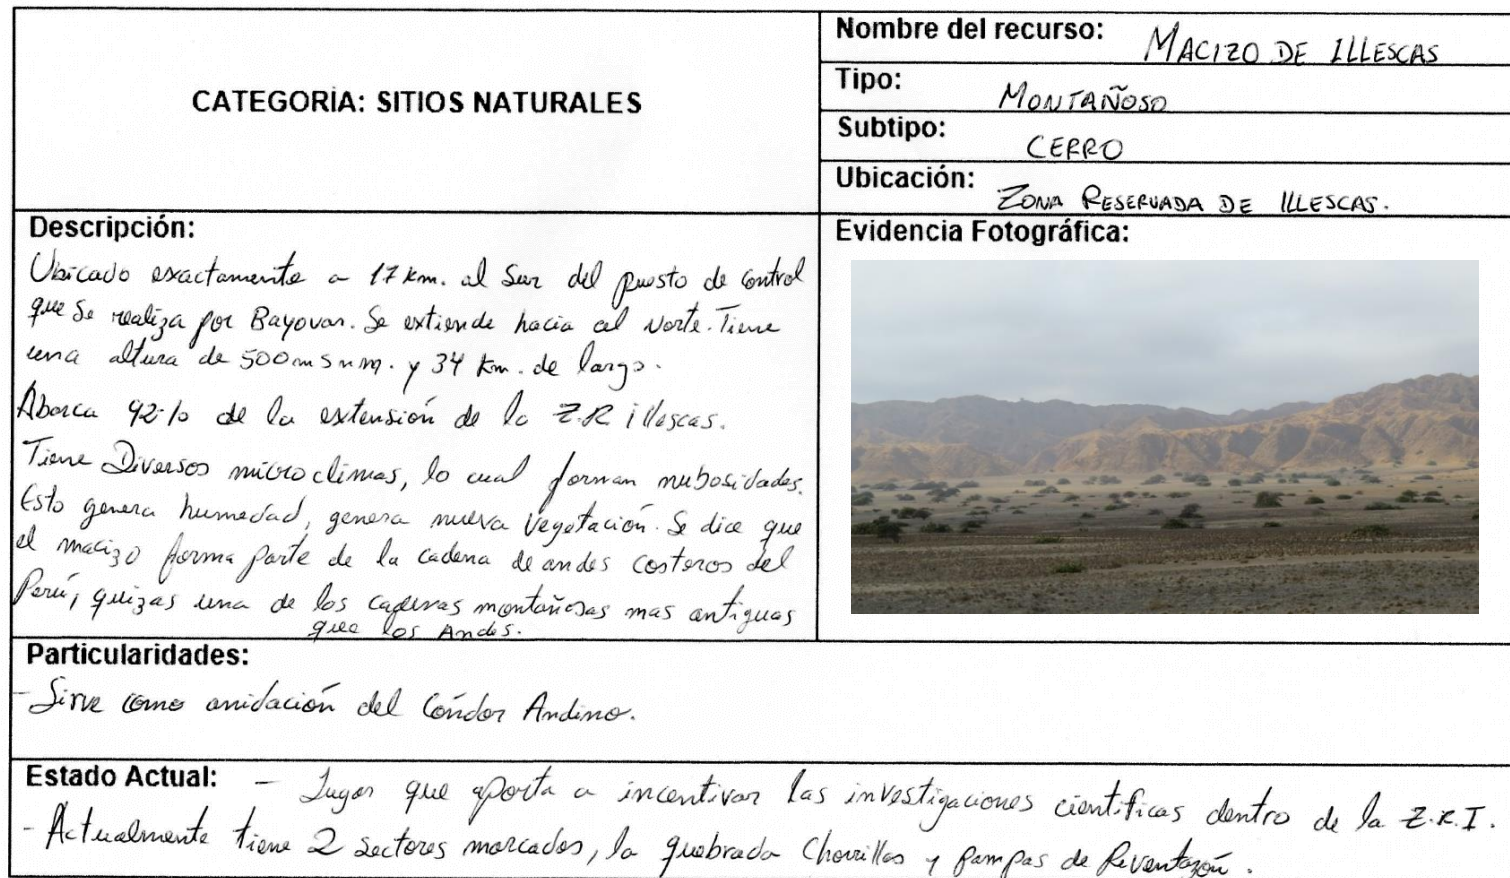 CATEGORÍA: SITIOS NATURALES
Nombre del recurso: MACIZO DE ILLESCAS
Tipo: MONTAÑOSO
Subtipo: CERRO
Ubicación: ZONA RESERVADA DE ILLESCAS.
Descripción:
Ubicado exactamente a 17 km. al Sur del puesto de control
que se realiza por Bayovar. Se extiende hacia el Norte. Tiene
una altura de 500 msnm. y 34 km. de largo.
Abarca 92% de la extensión de la Z.R illescas.
Tiene Diversos microclimas, lo cual forman nubosidades.
Esto genera humedad, genera nueva vegetación. Se dice que
el macizo forma parte de la cadena de andes costeros del
Perú, quizas una de las cadenas montañosas mas antiguas
que los Andes.
Evidencia Fotográfica:
Particularidades:
- Sirve como anidación del Cóndor Andino.
Estado Actual: - Lugar que aporta a incentivar las investigaciones científicas dentro de la Z.R.I.
- Actualmente tiene 2 sectores marcados, la quebrada Chorrillos y pampas de Reventazón.